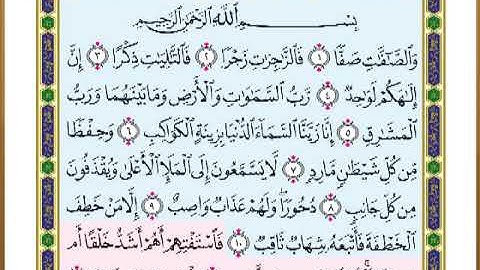 بِسْمِ اللَّهِ الرَّحْمَٰنِ الرَّحِيمِ
وَالصَّافَّاتِ صَفًّا ١ فَالزَّاجِرَاتِ زَجْرًا ٢ فَالتَّالِيَاتِ ذِكْرًا ٣ إِنَّ
إِلَٰهَكُمْ لَوَاحِدٌ ٤ رَبُّ السَّمَاوَاتِ وَالْأَرْضِ وَمَا بَيْنَهُمَا وَرَبُّ
الْمَشَارِقِ ٥ إِنَّا زَيَّنَّا السَّمَاءَ الدُّنْيَا بِزِينَةٍ الْكَوَاكِبِ ٦ وَحِفْظًا
مِّن كُلِّ شَيْطَانٍ مَّارِدٍ ٧ لَّا يَسَّمَّعُونَ إِلَى الْمَلَإِ الْأَعْلَىٰ وَيُقْذَفُونَ
مِن كُلِّ جَانِبٍ ٨ دُحُورًا وَلَهُمْ عَذَابٌ وَاصِبٌ ٩ إِلَّا مَنْ خَطِفَ
الْخَطْفَةَ فَأَتْبَعَهُ شِهَابٌ ثَاقِبٌ ١٠ فَاسْتَفْتِهِمْ أَهُمْ أَشَدُّ خَلْقًا أَم